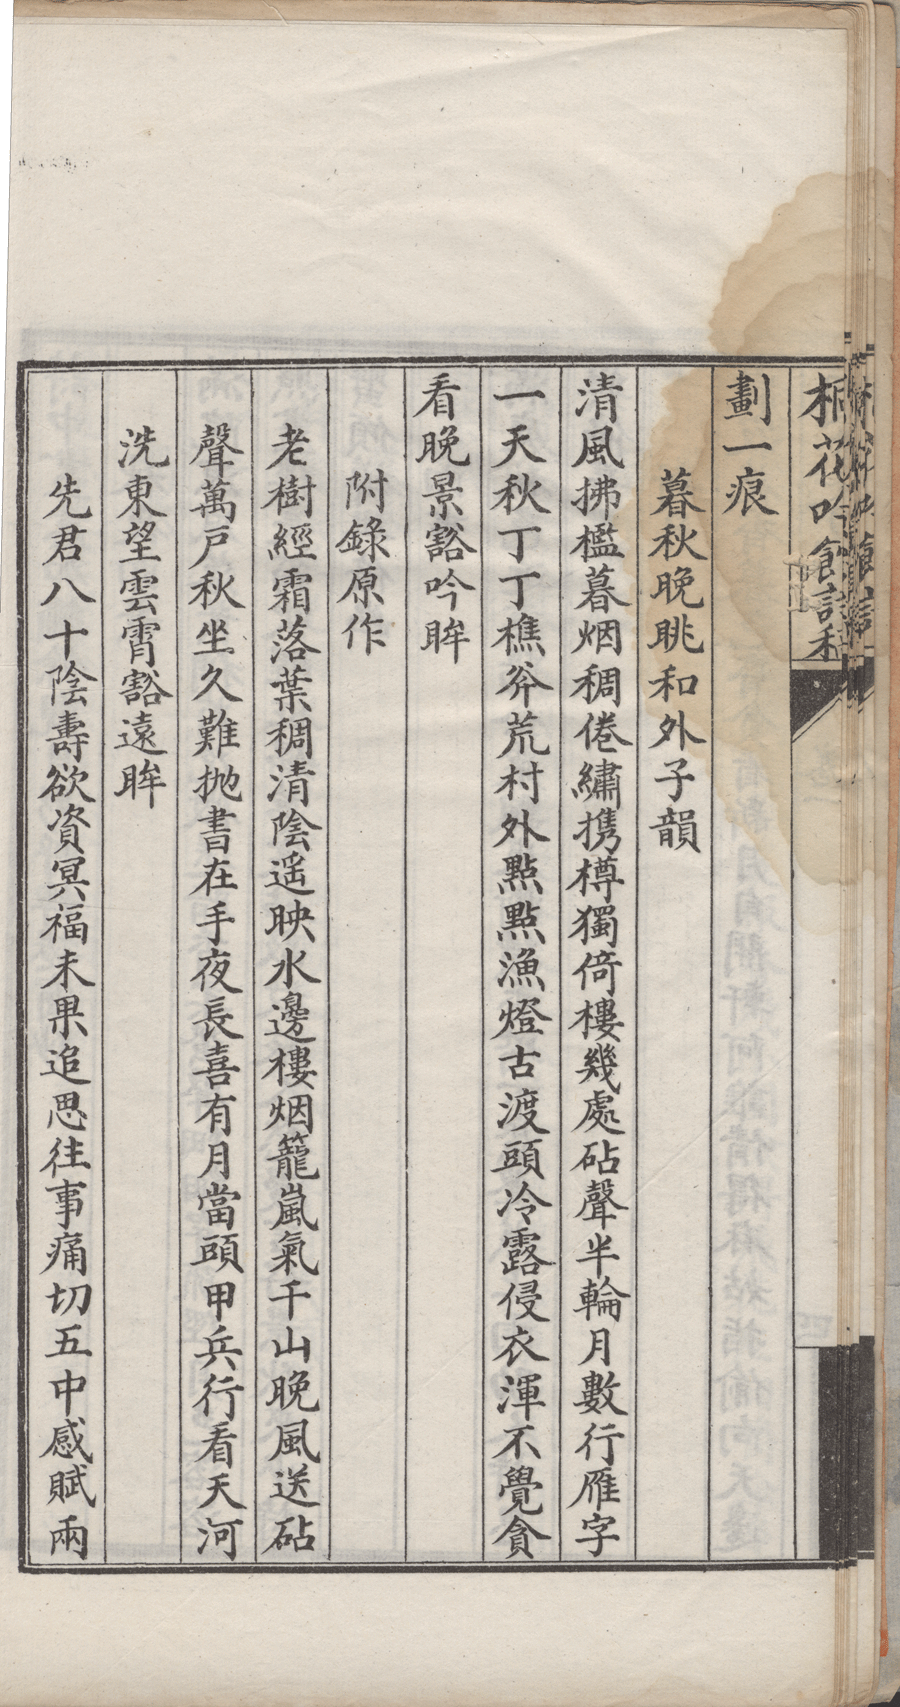 劃一痕
暮秋晚眺和外子韻
清風拂檻暮烟稠倦繡携樽獨倚樓幾處砧聲半輪月數行雁字
一天秋丁丁樵斧荒村外點點漁燈古渡頭冷露侵衣渾不覺貪
看晚景豁吟眸
附錄原作
老樹經霜落葉稠清陰遥映水邊樓烟籠嵐氣千山晚風送砧
聲萬戶秋坐久難抛書在手夜長喜有月當頭甲兵行看天河
洗東望雲霄豁遠眸
先君八十陰壽欲資冥福未果追思往事痛切五中感賦兩